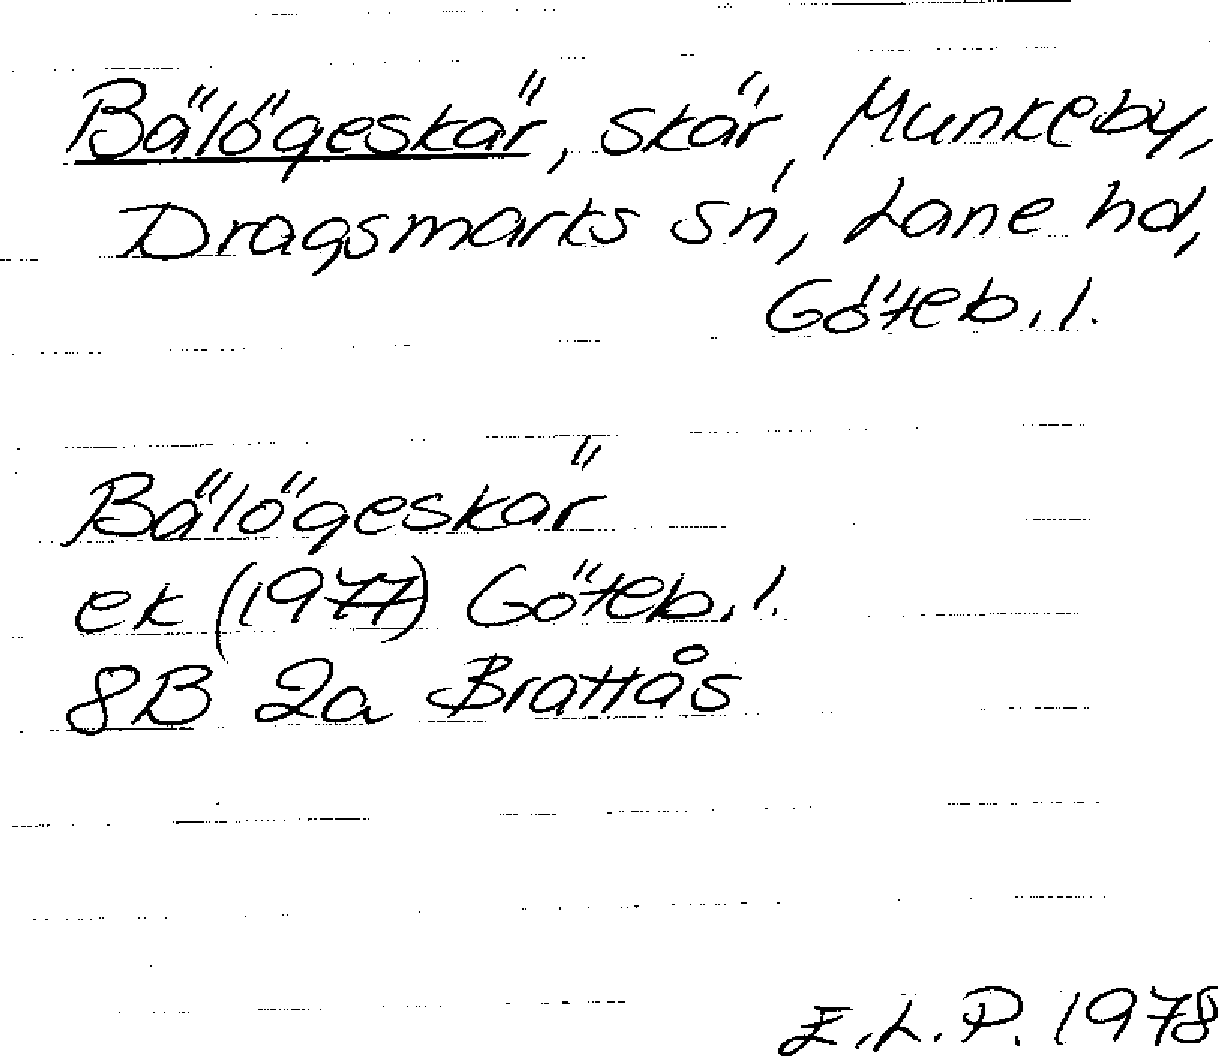 Bälögeskär, skär, Munkeby,
Dragsmarks sn, Lane hd,
Göteb. l.
Bälögeskär
ek (1977) Göteb. l.
8B 2a Brattås
E.L.P. 1978